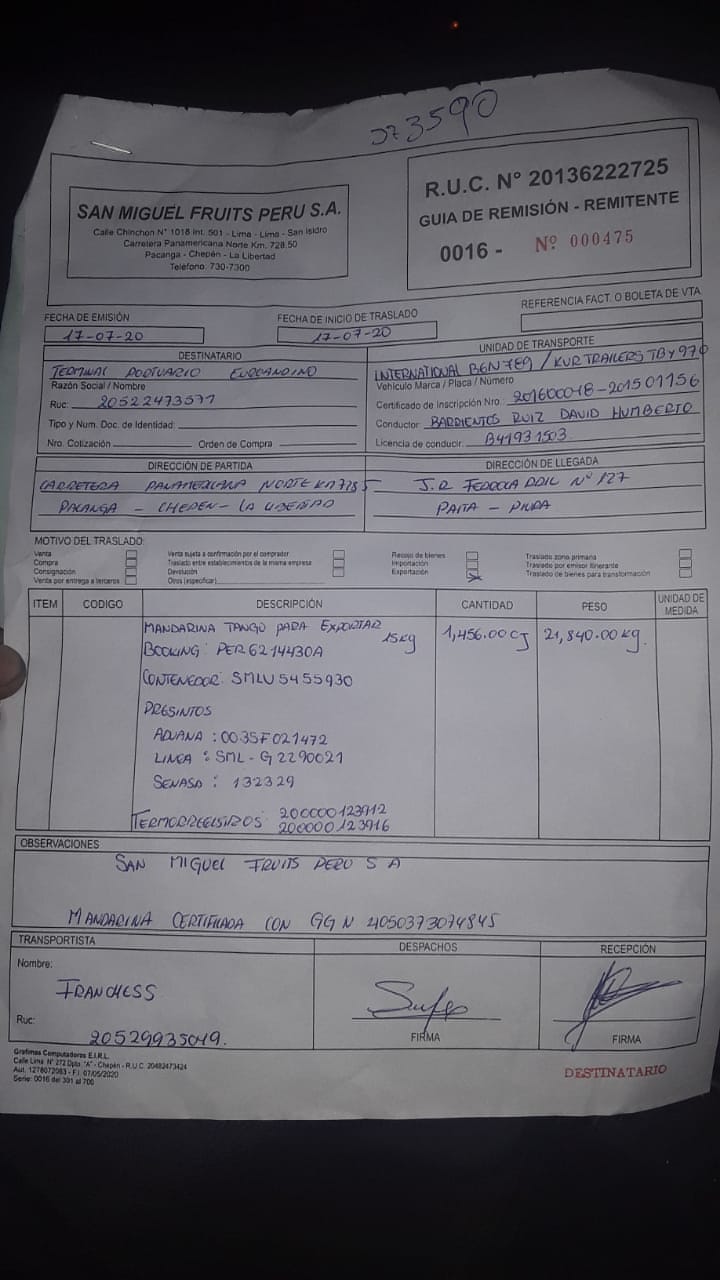 073590
SAN MIGUEL FRUITS PERU S.A.
Calle Chinchon N° 1018 Int. 501 - Lima - Lima - San Isidro
Carretera Panamericana Norte Km. 728.50
Pacanga - Chepén - La Libertad
Teléfono: 730-7300
R.U.C. N° 20136222725
GUIA DE REMISIÓN - REMITENTE
0016 - Nº 000475
FECHA DE EMISIÓN
17-07-20
FECHA DE INICIO DE TRASLADO
17-07-20
REFERENCIA FACT. O BOLETA DE VTA.
DESTINATARIO
TERMINAL PORTUARIO EUROANDINO
Razón Social / Nombre
Ruc: 20522473571
Tipo y Num. Doc. de Identidad:
Nro. Cotización Orden de Compra
UNIDAD DE TRANSPORTE
INTERNATIONAL BEN 769 / KUR TRAILERS TBY 970
Vehículo Marca / Placa / Número
Certificado de Inscripción Nro. 201600018-201501156
Conductor: BARRIENTOS RUIZ DAVID HUMBERTO
Licencia de conducir: B41931503
DIRECCIÓN DE PARTIDA
CARRETERA PANAMERICANA NORTE KM 728.5
PACANGA - CHEPEN - LA LIBERTAD
DIRECCIÓN DE LLEGADA
J.R. N° 127
PAITA - PIURA
MOTIVO DEL TRASLADO:
Venta
Compra
Consignación
Venta por entrega a terceros
Venta sujeta a confirmación por el comprador
Traslado entre establecimientos de la misma empresa
Devolución
Otros (especificar)
Recojo de bienes
Importación
Exportación
Traslado zona primaria
Traslado por emisor itinerante
Traslado de bienes para transformación
ITEM CODIGO DESCRIPCIÓN CANTIDAD PESO UNIDAD DE MEDIDA
MANDARINA TANGO PARA EXPORTAR 15Kg 1,456.00 CJ 21,840.00 kg.
BOOKING: PER6214430A
CONTENEDOR: SMLU 5455930
PRESINTOS
ADUANA : 0035F021472
LINEA : SML - G2290021
SENASA : 132329
TERMORREGISTROS: 200000123912
200000123916
OBSERVACIONES
SAN MIGUEL FRUITS PERU S A
MANDARINA CERTIFICADA CON GGN 4050373074845
TRANSPORTISTA
Nombre:
FRANCHESS
Ruc:
20529935049.
DESPACHOS
FIRMA
RECEPCIÓN
FIRMA
Grafimas Computadoras E.I.R.L.
Calle Lima N° 272 Dpto. "A" - Chepén - R.U.C. 20482473424
Aut. 1278072083 - F.I. 07/05/2020
Serie: 0016 del 301 al 700
DESTINATARIO